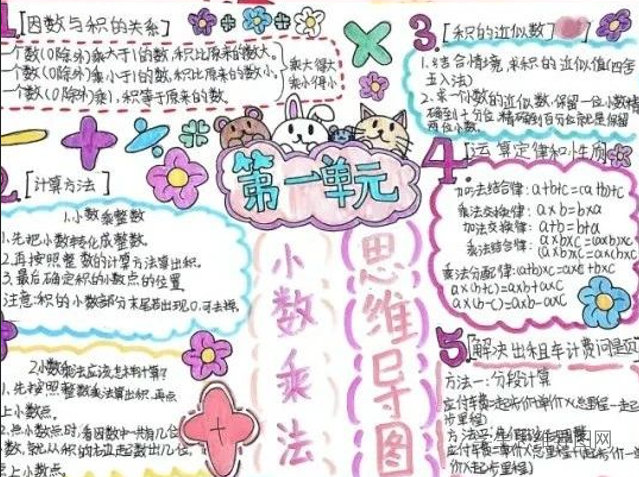 1.[因数与积的关系]
一个数(0除外)乘大于1的数,积比原来的数大。
一个数(0除外)乘小于1的数,积比原来的数小。
一个数(0除外)乘1,积等于原来的数。
乘大得大
乘小得小
2.[计算方法]
1.小数乘整数
1.先把小数转化成整数。
2.再按照整数的计算方法算出积。
3.最后确定积的小数点的位置
注意:积的小数部分末尾若出现0,可去掉。
2.小数乘法应该怎样计算?
1.先按照整数乘法算出积,再点
上小数点。
2.点小数点时,看因数中一共有几位
小数,就从积的右边起数出几位,
点上小数点。
第一单元
小数乘法
思维导图
3.[积的近似数]
1.结合情境,求积的近似值(四舍
五入法)
2.求一个数的近似数,保留一位小数
确到十分位,精确到百分位就是保留
两位小数。
4.[运算定律和性质]
加法结合律:
乘法交换律:a×b=b×a
加法交换律:a+b=b+a
乘法结合律:
乘法分配律:
a×(b+c)=a×b+a×c
a×(b-c)=a×b-a×c
5.[解决出租车计费问题]
方法一:分段计算